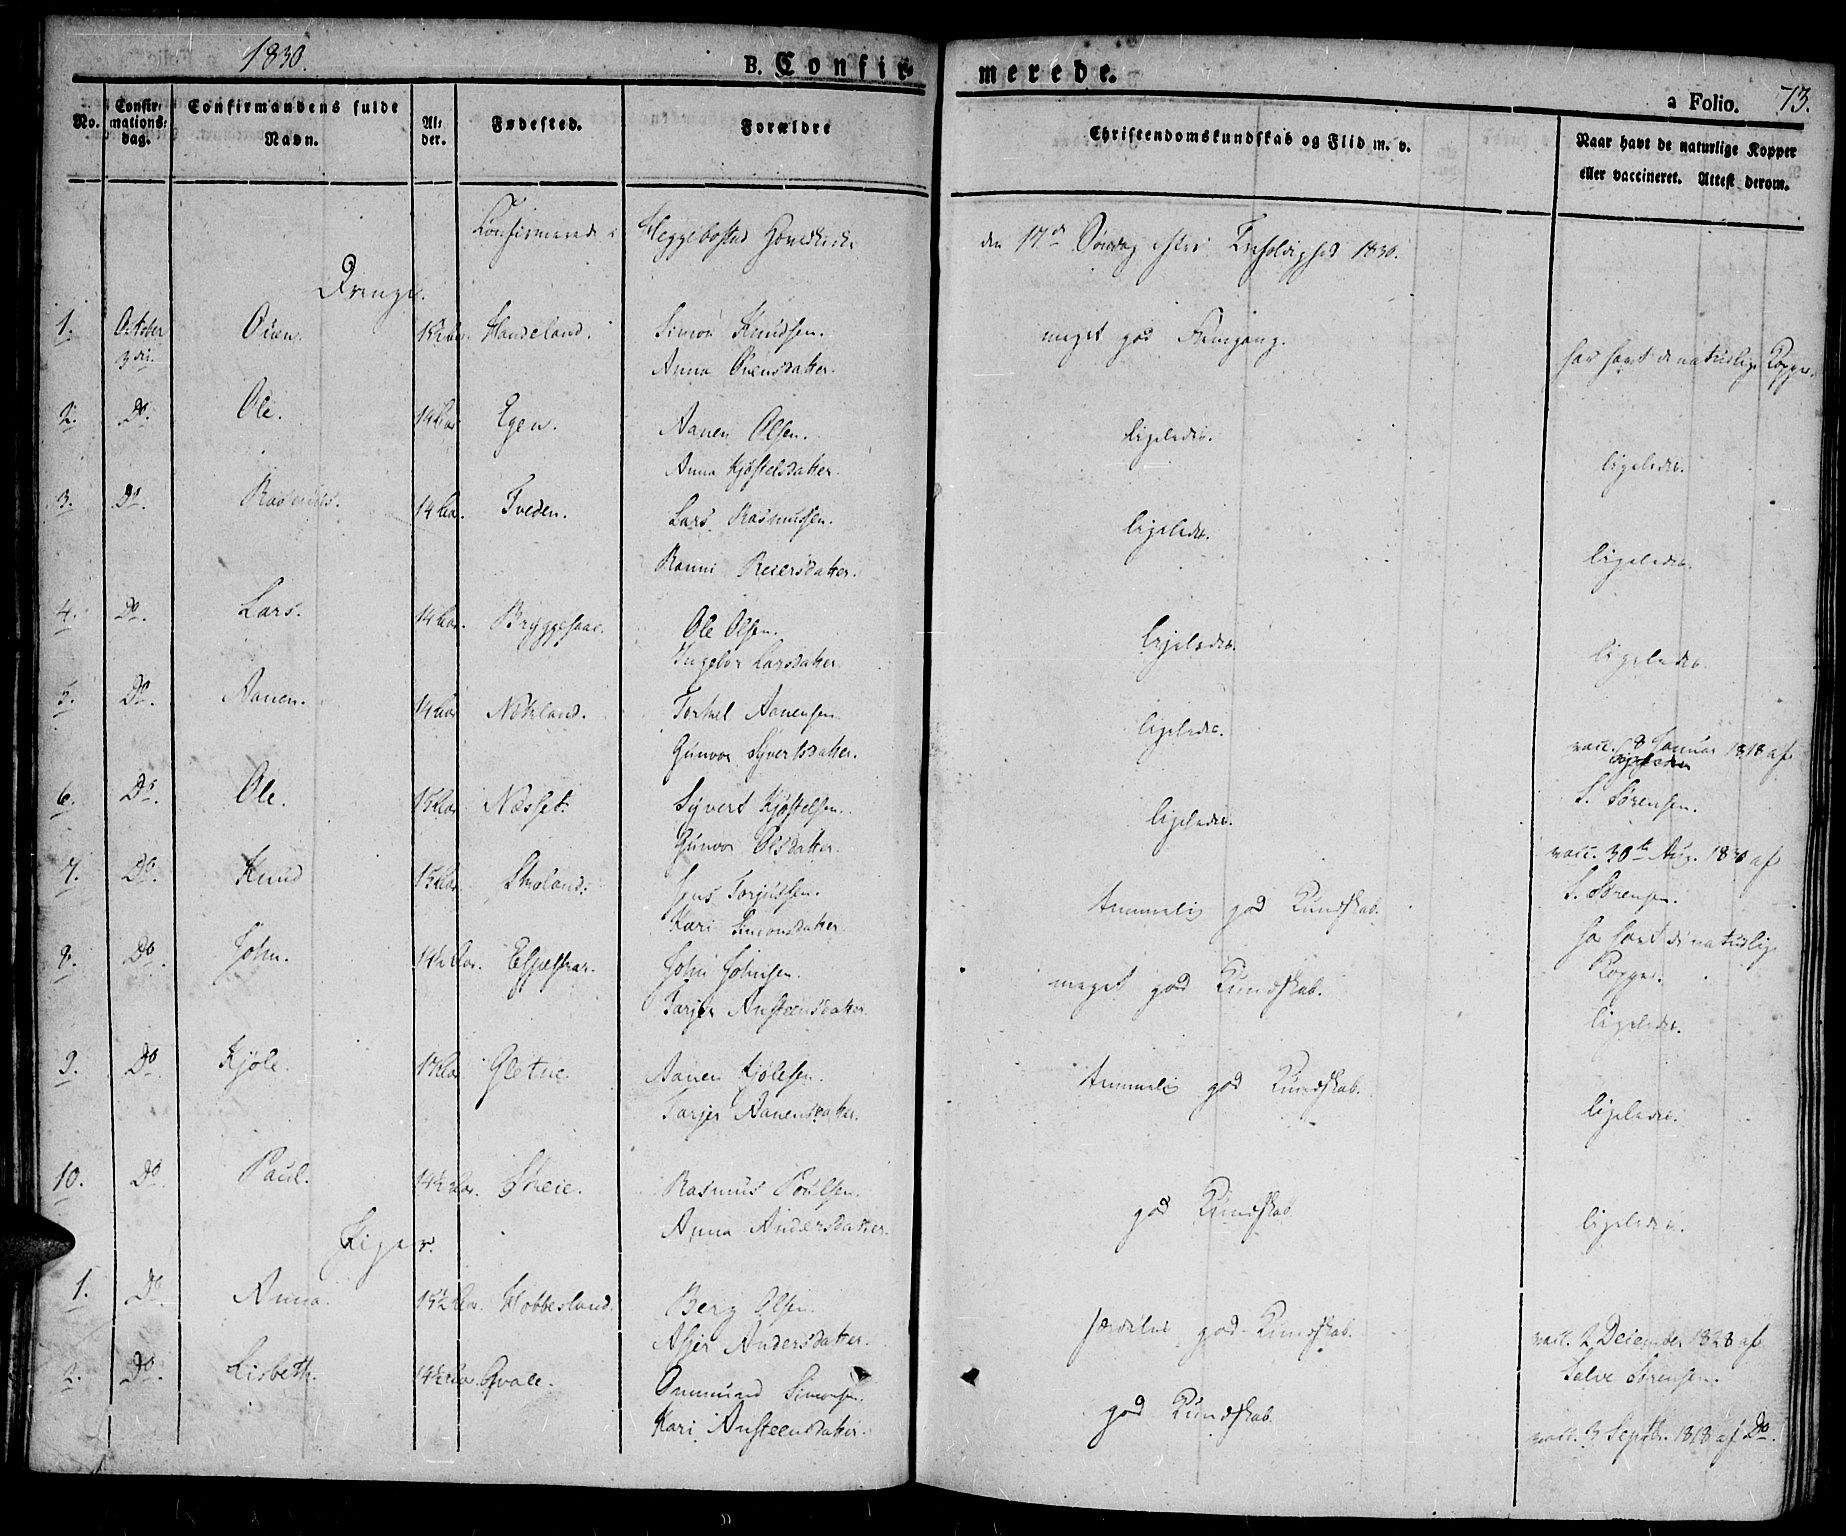 1830.
B. Confirmerede.
a Folio. 73.
No.
Confirmationsdag.
Confirmandens fulde Navn.
Alder.
Fødested.
Forældre
Christendomskundskab og Flid m. v.
Naar havt de naturlige Kopper eller vaccineret. Attest derom.
Confirmerede i Heggebostad den 17de Søndag efter Trefoldighed 1830.
Drenge.
1. October 3die Ouen Haadeland. Simon Knudsen. meget god Fremgang.
Anna Ouensdatter. har havt de naturlige Kopper.
2. Do. Ole. Egen. Aanen Olsen. ligeledes.
Anna Kjøstelsdatter. ligeledes.
3. Do. Rasmus. 14 Aar. Tveden. Lars Rasmussen. ligeledes.
Ranni Reiersdatter. ligeledes.
4. Do. Lars. 14 Aar. Bryggesaae. Ole Olsen. ligeledes.
Ingebor Larsdatter. ligeledes.
5. Do. Aanen. 14 Aar Nøkland. Torkel Aanensen. ligeledes.
Gunvor Syvertsdatter. vacc. 18 Januar 1818 af
6. Do. Ole. 15 Aar Næsset. Syvert Kjøstelsen. ligeledes. S. Sørensen.
Gunvor Olsdatter. vacc. 30te Aug. 1830 af
7. Do. Knud 15 Aar. Skoland. Jens Torjussen. temmelig god Kundskab. S. Sørensen.
Kari Simonsdatter har havt de naturlige
8. Do. John. 14½ Aar. John Johnsen. meget god Kundskab. Kopper.
Tarjer Ansteensdatter. ligeledes.
9. Do Kjøle. Gletne. Aanen Kjølesen. temmelig god Kundskab.
Tarjer Aanensdatter. ligeledes.
10. Do Paul. 14½ Aar. Skeie. Rasmus Poulsen. god Kundskab
Anna Andersdatter. ligeledes.
Piger.
1. Do Anna. 15½ Aar. Hobbesland. Berg Olsen. særdeles god Kundskab.
Asjer Andersdatter. vacc. 2 December 1828 af
2. Do. Lisbeth. 14½ Aar Qvale. Ommund Simonsen. god Kundskab. Salve Sørensen.
Kari Ansteensdatter. vacc. 3 Septbr. 1818 af Do.